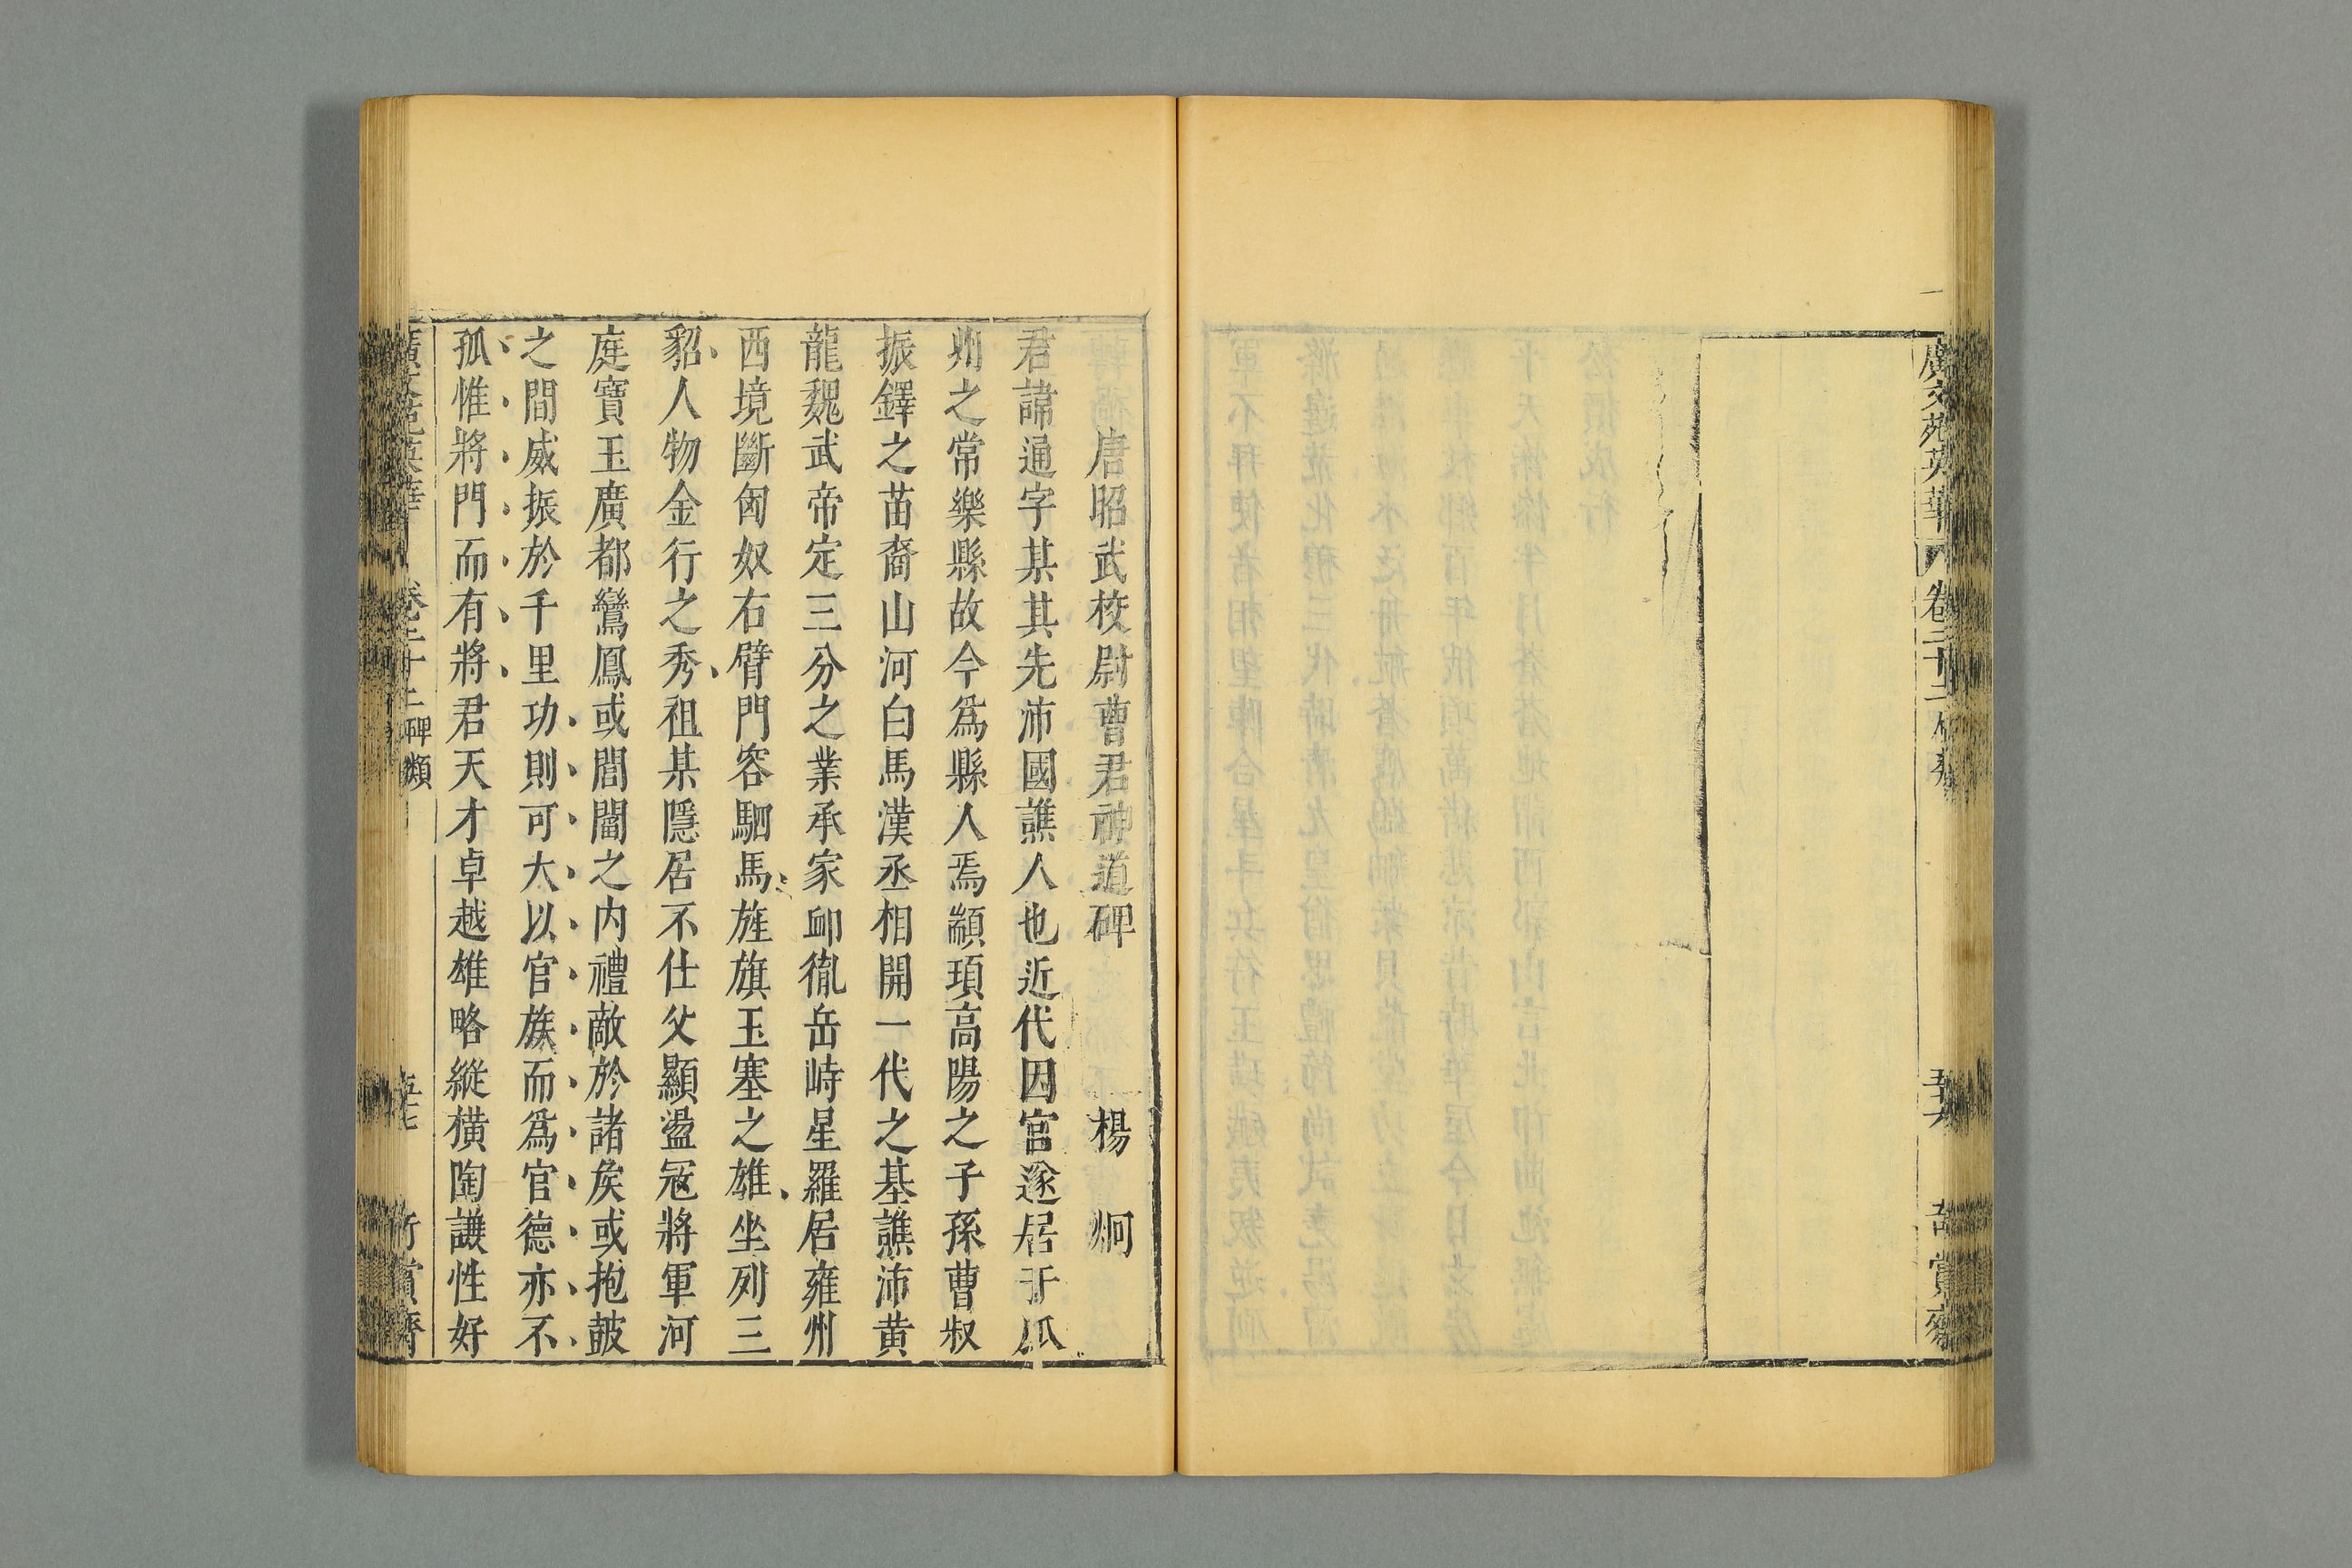 廣文苑英華 卷二十二 五十六
唐昭武校尉曹君神道碑 楊炯
君諱通字某其先沛國譙人也近代因官遂居于瓜
州之常樂縣故今為縣人焉顓頊高陽之子孫曹叔
振鐸之苗裔山河白馬漢丞相開一代之基譙沛黄
龍魏武帝定三分之業承家卹胤岳峙星羅居雍州
西境斷匈奴右臂門容駟馬旌旗玉塞之雄坐列三
貂人物金行之秀祖某隱居不仕父顯盪寇將軍河
庭寶玉廣都鸞鳳或閭閻之内禮敵於諸矦或抱鼓
之間威振於千里功則可大以官族而為官德亦不
孤惟將門而有將君天才卓越雄略縱橫陶謙性好
廣文苑英華 卷二十二 碑類 五十七